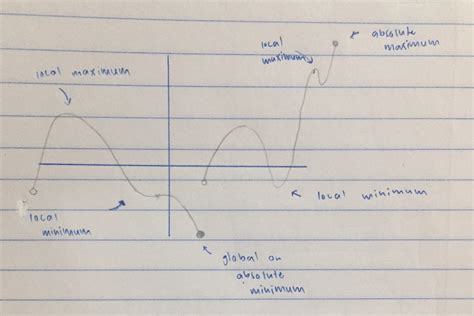 local
maximum
absolute
maximum
local maximum
local minimum
local
minimum
global on
absolute
minimum